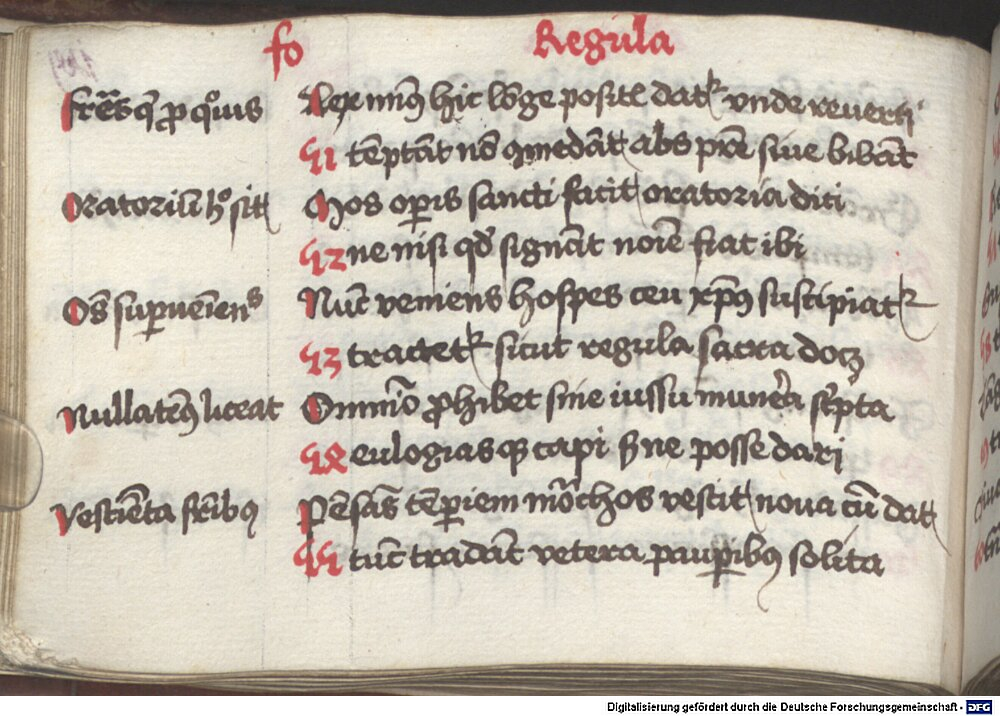 fo Regula
fr̄es q̄ ꝓ qͦuis Lex nimꝰ hic lōge positꝭ datᷣ vnde reuerti
51 tēptāt nō ꝯmedāt abs prē siue bibāt
Oratoriū hͦ sit Mos oꝑis sancti facit oratoria dici
52 ne nisi qd̄ signāt noīe fiat ibi
Oēs suꝑueīenˢ Nūc veniens hospes ceu xp̄us suscipiatᷣ
53 tractetᷣ sicut regula sacra docꝫ
Nullatēꝰ liceat Omnīo ꝓhibet sine iussu munera sc̄pta
54 eulogias qꝫ capi sine posse dari
Vestīeta fr̄ibꝰ Pēsās tēꝑiem mōchos vestit noua cū dat
55 tūc tradāt vetera pauꝑibꝰ solita
Digitalisierung gefördert durch die Deutsche Forschungsgemeinschaft - DFG